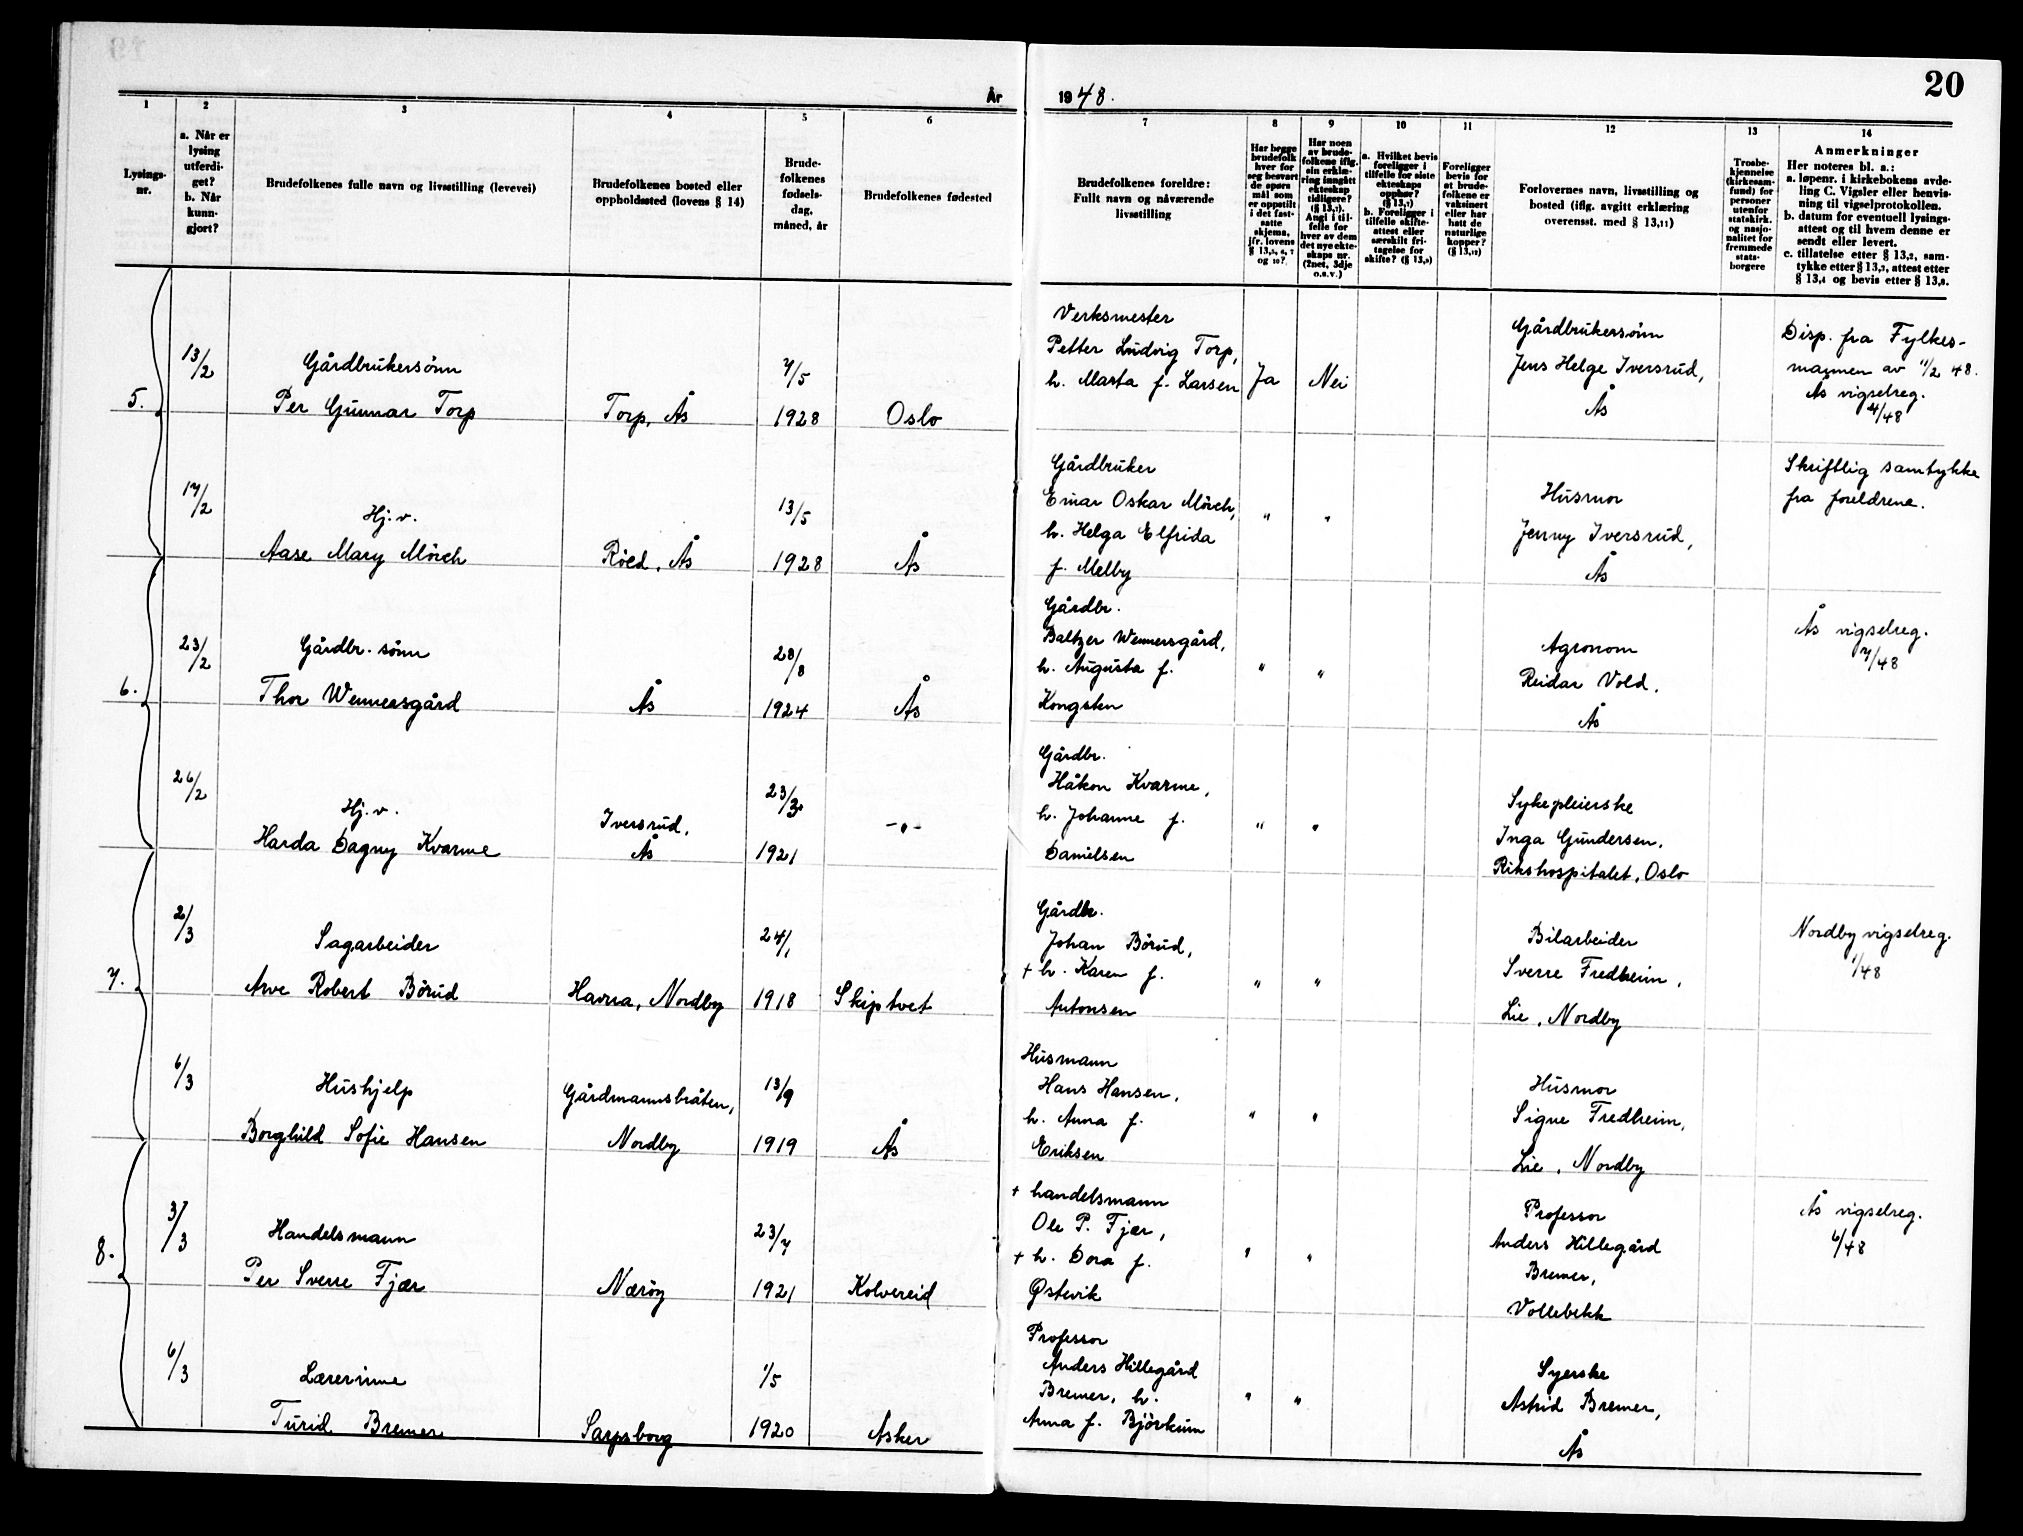 20
År
1948.
1
2
3
4
5
6
7
8
9
10
11
12
13
14
Lysings-
nr.
a. Når er
lysing
utferdi-
get?
b. Når
kunn-
gjort?
Brudefolkenes fulle navn og livsstilling (levevei)
Brudefolkenes bosted eller
oppholdssted (lovens § 14)
Brude-
folkenes
fødsels-
dag,
måned, år
Brudefolkenes fødested
Brudefolkenes foreldre:
Fullt navn og nåværende
livsstilling
Har begge
brudefolk
hver for
seg besvart
de spørs
mål som
er oppstilt
i det fast-
satte
skjema,
jfr. lovens
og 10?
Har noen
av brude-
folkene iflg.
sin erklæ-
ring inngått
ekteskap
tidligere?
(§ 13,7).
Angi i til-
felle for
hver av dem
det nye ekte-
skaps nr.
(2net, 3dje
o.s.v.)
a. Hvilket bevis
foreligger i
tilfelle for siste
ekteskaps
opphør?
(§ 13,7)
b. Foreligger i
tilfelle skifte-
attest eller
særskilt fri-
tagelse for
skifte? (§ 13,9)
Foreligger
bevis for
at brude-
folkene er
vaksinert
eller har
hatt de
naturlige
kopper?
(§ 13,12)
Forlovernes navn, livsstilling og
bosted (iflg. avgitt erklæring
overensst. med § 13,11)
Trosbe-
kjennelse
(kirkesam-
fund) for
personer
utenfor
statskirk.
og nasjo-
nalitet for
fremmede
stats-
borgere
Anmerkninger
Her noteres bl. a.:
a. løpenr. i kirkebokens avde-
ling C. Vigsler eller henvis-
ning til vigselprotokollen.
b. datum for eventuell lysings-
attest og til hvem denne er
sendt eller levert.
c. tillatelse etter § 13,2, sam-
tykke etter § 13,3, attest etter
§ 13,4 og bevis etter § 13,8.
5.
13/2
Gårdbrukersønn
Per Gunnar Torp
Torp, Ås
7/5
1928
Oslo
Verksmester
Petter Ludvig Torp,
h. Marta f. Larsen
Ja
Nei
Gårdbrukersønn
Jens Helge Iversrud,
Ås
Disp. fra Fylkes-
mannen av 11/2 48.
Ås vigselreg.
4/48
17/2
Hj.v.
Aase Mary Mörch
Röed, Ås
13/5
1928
Ås
Gårdbruker
Einar Oskar Mörch,
h. Helga Elfrida
f. Melby
"
"
Husmor
Jenny Iversrud,
Ås
Skriftlig samtykke
fra foreldrene.
6.
23/2
Gårdbr. sönn
Thor Wennersgård
Ås
28/8
1924
Ås
Gårdbr.
Baltzer Wennersgård,
h. Augusta f.
Kongsten
"
"
Agronom
Reidar Vold,
Ås
Ås vigselreg.
7/48
26/2
Hj.v.
Harda Dagny Kvarme
Iversrud,
Ås
23/3
1921
-"-
Gårdbr.
Håkon Kvarme,
h. Johanne f.
Danielsen
"
"
Sykepleierske
Inga Gundersen,
Rikshospitalet, Oslo
7.
2/3
Sagarbeider
Arve Robert Börud
Havra, Nordby
24/1
1918
Skiptvet
Gårdbr.
Johan Börud,
+ h. Karen f.
Antonsen
"
"
Bilarbeider
Sverre Fredheim,
Lie, Nordby
Nordby vigselreg.
1/48
6/3
Hushjelp
Borghild Sofie Hansen
Gårdmannsbråten,
Nordby
13/9
1919
Ås
Husmann
Hans Hansen,
h. Anna f.
Eriksen
"
"
Husmor
Signe Fredheim,
Lie, Nordby
8.
3/3
Handelsmann
Per Sverre Fjær
Nærøy
23/7
1921
Kolvereid
+ handelsmann
Ole P. Fjær,
+ h. Dora f.
Østevik
"
"
Professor
Anders Hillegård
Bremer,
Vollebekk
Ås vigselreg.
6/48
6/3
Lærerinne
Turid Bremer
Sarpsborg
1/5
1920
Asker
Professor
Anders Hillegård
Bremer, h.
Anna f. Björkum
"
"
Syerske
Astrid Bremer,
Ås